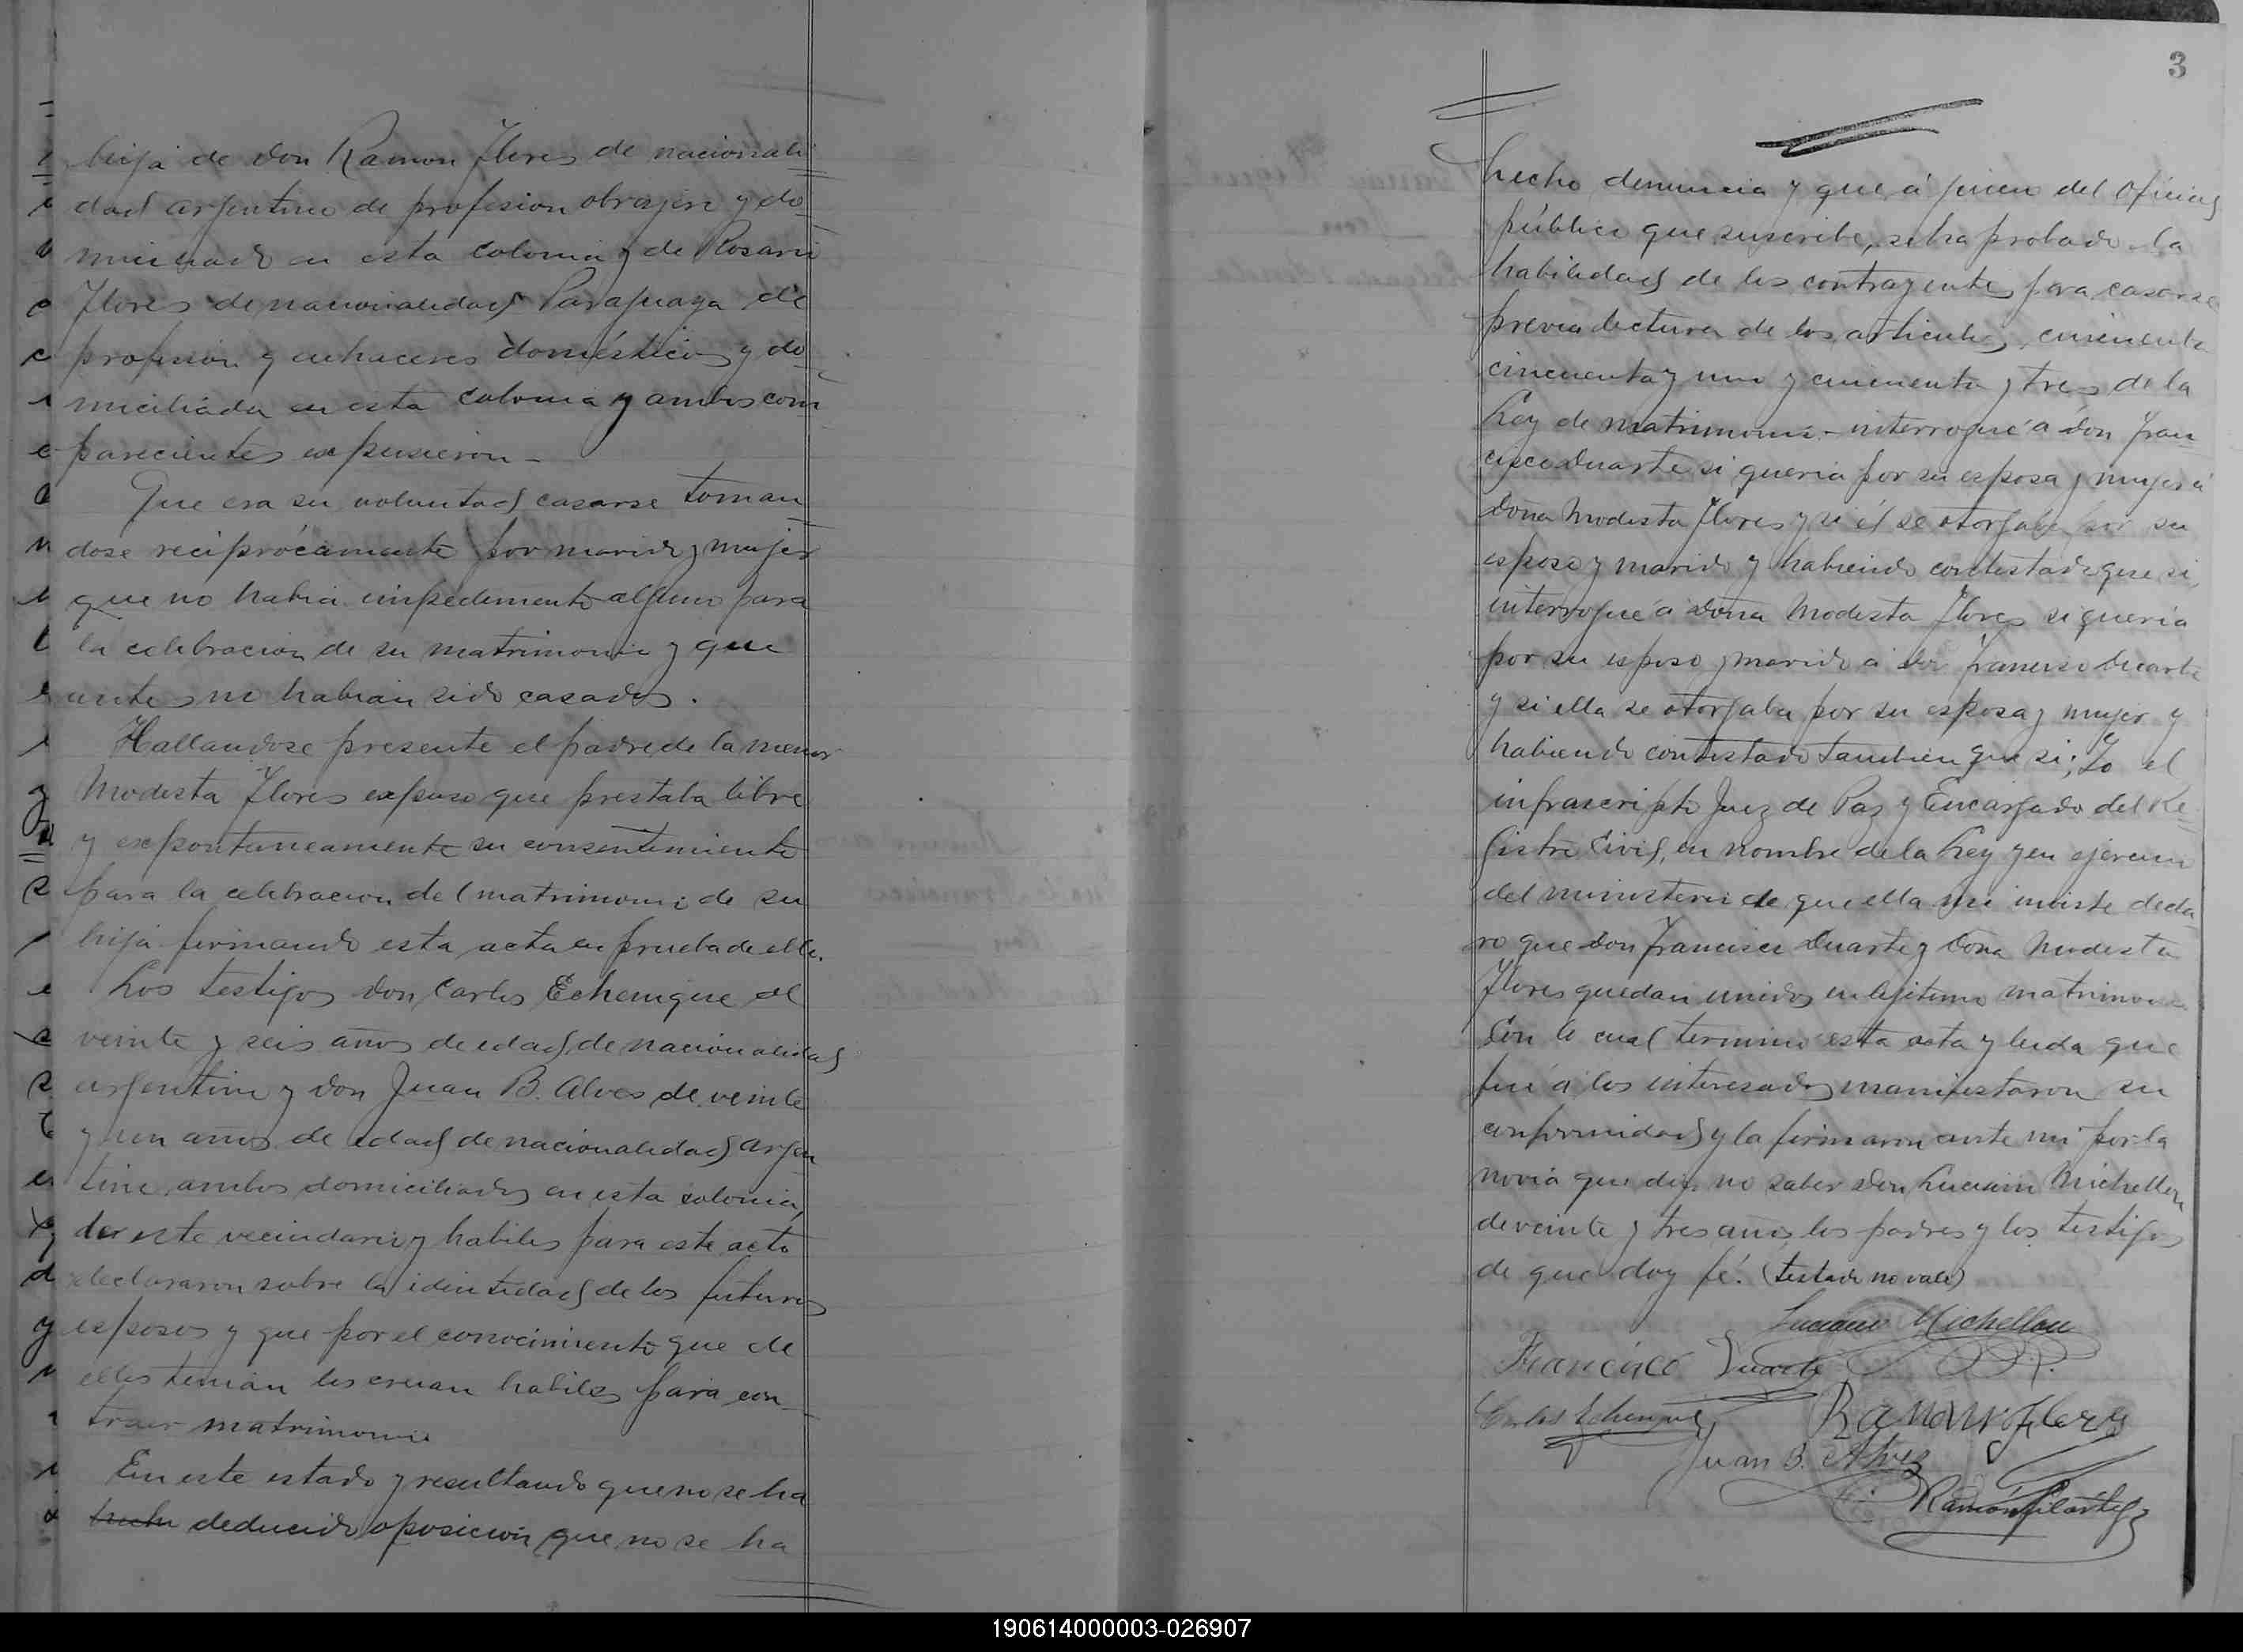 hija de don Ramon Flores de nacionali
dad argentino de profesion obrajero y do
miciliado en esta colonia y de Rosario
Flores de nacionalidad Paraguaya de
profesion quehaceres domésticos y do
miciliada en esta colonia y ambos com
parecientes expusieron -
Que era su voluntad casarse toman
dose reciprócamente por marido y mujer
que no habia impedimento alguno para
la celebracion de su matrimonio y que
antes no habian sido casados.
Hallandose presente el padre de la menor
Modesta Flores expuso que prestaba libre
y expontaneamente su consentimiento
para la celebracion del matrimonio de su
hija firmando esta acta en prueba de ello.
Los testigos don Carlos Echenique de
veinte y seis años de edad, de nacionalidad
argentino y don Juan B. Alves de veinte
y un años de edad de nacionalidad argen
tino ambos domiciliados en esta colonia,
de este vecindario y habiles para este acto
declararon sobre la identidad de los futuros
esposos y que por el conocimiento que de
ellos tenian los creian habiles para con
traer matrimonio
En este estado y resultando que no se ha
hecho deducido oposicion que no se ha
3
hecho denuncia y que á juicio del Oficial
público que suscribe, se ha probado la
habilidad de los contrayentes para casarse
previa lectura de los articulos, cincuenta
cincuenta y uno y cincuenta y tres de la
Ley de matrimonio - interrogué á don Fran
cisco Duarte si queria por su esposa y mujer á
doña Modesta Flores y si él se otorgaba por su
esposo y marido y habiendo contestado que si,
interrogué á doña Modesta Flores si queria
por su esposo y marido á don Francisco Duarte
y si ella se otorgaba por su esposa y mujer y
habiendo contestado tambien que si; Yo el
infrascripto Juez de Paz y Encargado del Re
gistro Civil, en nombre de la Ley y en ejercicio
del ministerio de que ella me inviste decla
ro que don Francisco Duarte y doña Modesta
Flores quedan unidos en lejitimo matrimonio
Con lo cual termino esta acta y leida que
fué á los interesados manifestaron su
conformidad y la firmaron ante mi por la
novia que dijo no saber don Luciano Michellon
de veinte y tres años los padres y los testigos
de que doy fé. (testado no vale)
Luciano Michellon
Francisco Duarte
Carlos Echenique
Ramon Flores
Juan B. Alvez
Ramon
190614000003-026907